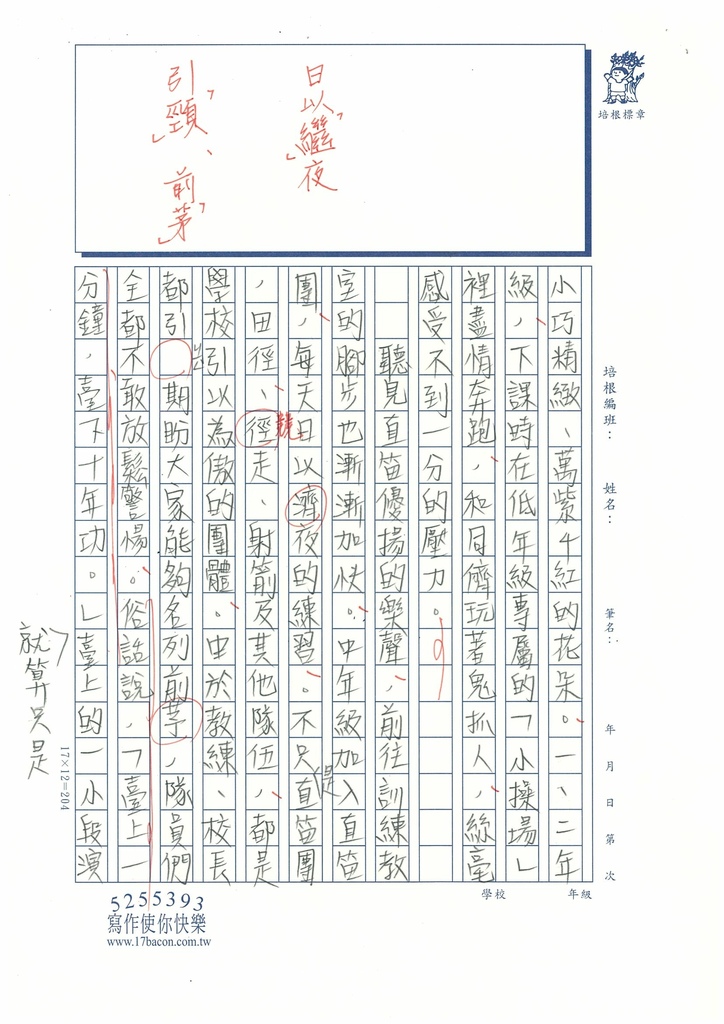 日以「繼」夜
引「頸」、前「茅」
培根標章
培根編班：
姓名：
筆名：
年 月 日 第 次
小巧精緻、萬紫千紅的花朵。一、二年
級，下課時在低年級專屬的「小操場」
裡盡情奔跑，和同儕玩著鬼抓人，絲毫
感受不到一分的壓力。
聽見直笛優揚的樂聲，前往訓練教
室的腳步也漸漸加快。中年級加入直笛
團，每天日以濟夜的練習。不只是直笛團
，田徑、徑走、射箭及其他隊伍，都是
競
學校引以為傲的團體。中於教練、校長
都引 期盼大家能夠名列前芧，隊員們
全都不敢放鬆警惕。俗話說，「臺上一
分鐘，臺下十年功。」臺上的一小段演
就算只是
17×12=204
5255393
寫作使你快樂
www.17bacon.com.tw
學校
年級